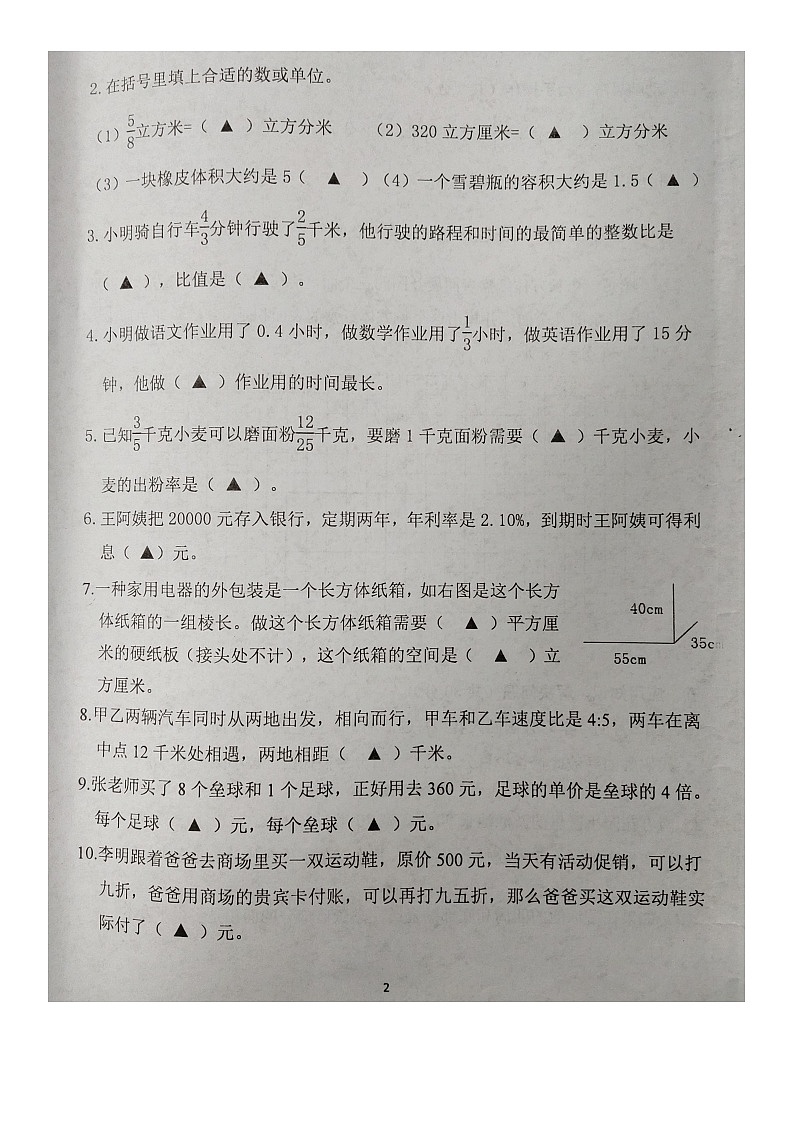 2.在括号里填上合适的数或单位。
(1)5/8立方米=( ▲ )立方分米 (2)320立方厘米=( ▲ )立方分米
(3)一块橡皮体积大约是5( ▲ )(4)一个雪碧瓶的容积大约是1.5( ▲ )
3.小明骑自行车4/3分钟行驶了2/5千米，他行驶的路程和时间的最简单的整数比是
( ▲ )，比值是( ▲ )。
4.小明做语文作业用了0.4小时，做数学作业用了1/3小时，做英语作业用了15分
钟，他做( ▲ )作业用的时间最长。
5.已知3/5千克小麦可以磨面粉12/25千克，要磨1千克面粉需要( ▲ )千克小麦，小
麦的出粉率是( ▲ )。
6.王阿姨把20000元存入银行，定期两年，年利率是2.10%，到期时王阿姨可得利
息( ▲)元。
7.一种家用电器的外包装是一个长方体纸箱，如右图是这个长方
体纸箱的一组棱长。做这个长方体纸箱需要( ▲ )平方厘
米的硬纸板(接头处不计)，这个纸箱的空间是( ▲ )立
方厘米。
40cm
35cm
55cm
8.甲乙两辆汽车同时从两地出发，相向而行，甲车和乙车速度比是4:5，两车在离
中点12千米处相遇，两地相距( ▲ )千米。
9.张老师买了8个垒球和1个足球，正好用去360元，足球的单价是垒球的4倍。
每个足球( ▲ )元，每个垒球( ▲ )元。
10.李明跟着爸爸去商场里买一双运动鞋，原价500元，当天有活动促销，可以打
九折，爸爸用商场的贵宾卡付账，可以再打九五折，那么爸爸买这双运动鞋实
际付了( ▲ )元。
2